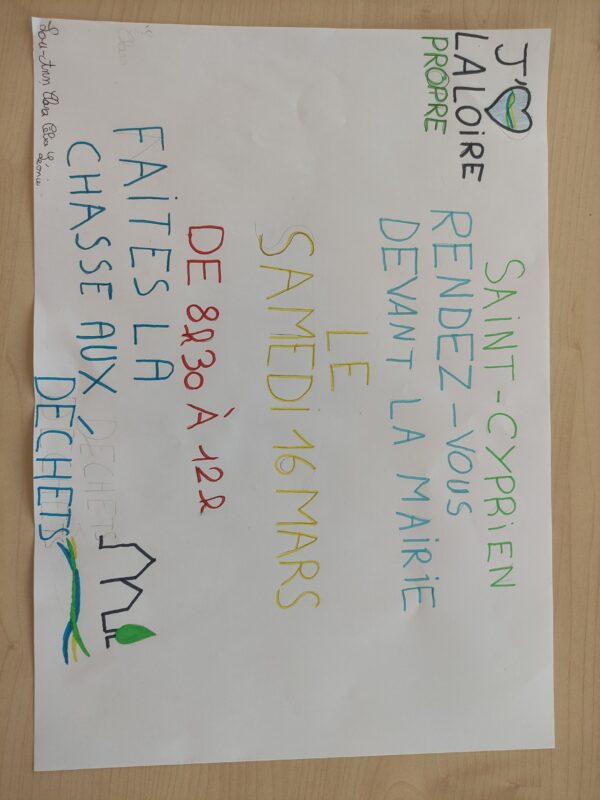 J'
LALOIRE
PROPRE
SAINT-CYPRIEN
RENDEZ-VOUS
DEVANT LA MAIRIE
LE
SAMEDI 16 MARS
DE 8h30 À 12h
FAITES LA
CHASSE AUX
DÉCHETS
DÉCHETS
Lou-Ann, Clara